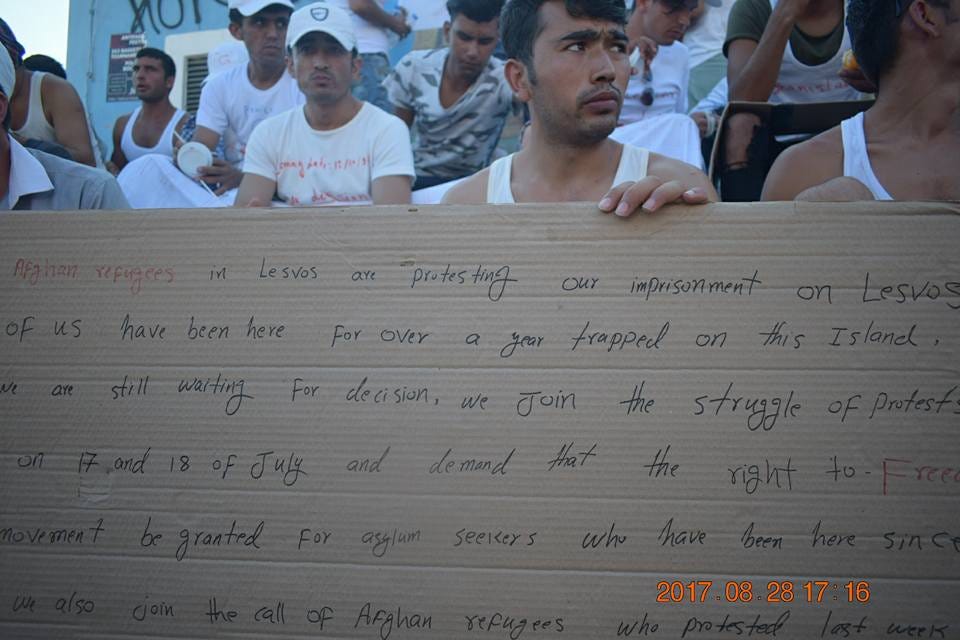 Afghan refugees in Lesvos are protesting our imprisonment on Lesvos
of us have been here for over a year trapped on this Island.
we are still waiting for decision, we join the struggle of protests
on 17 and 18 of July and demand that the right to - Freed
movement be granted for asylum seekers who have been here since
we also join the call of Afghan refugees who protested last week
2017.08.28 17:16